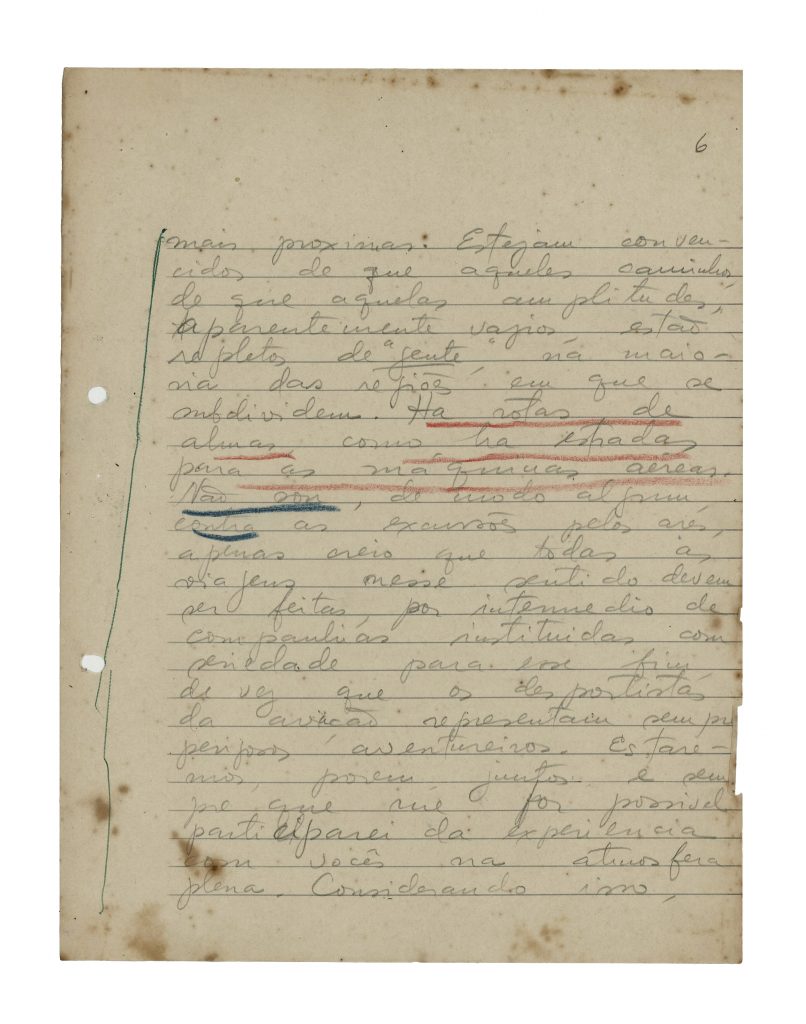 6
mais proximas. Estejam conven-
cidos de que aqueles caminhos
de que aquelas amplitudes,
aparentemente vazios, estão
repletos de "gente", na maio-
ria das regiões em que se
subdividem. Ha rotas de
almas, como ha estradas
para as máquinas aéreas.
Não sou, de modo algum,
contra as excursões pelos ares,
apenas creio que todas as
viagens nesse sentido devem
ser feitas, por intermedio de
companhias instituidas com
seriedade para esse fim
de vez que os desportistas
da aviação representam sempre
perigosos aventureiros. Estare-
mos, porem, juntos e sem
pre que me for possivel
participarei da experiencia
com vocês na atmosfera
plena. Considerando isso,